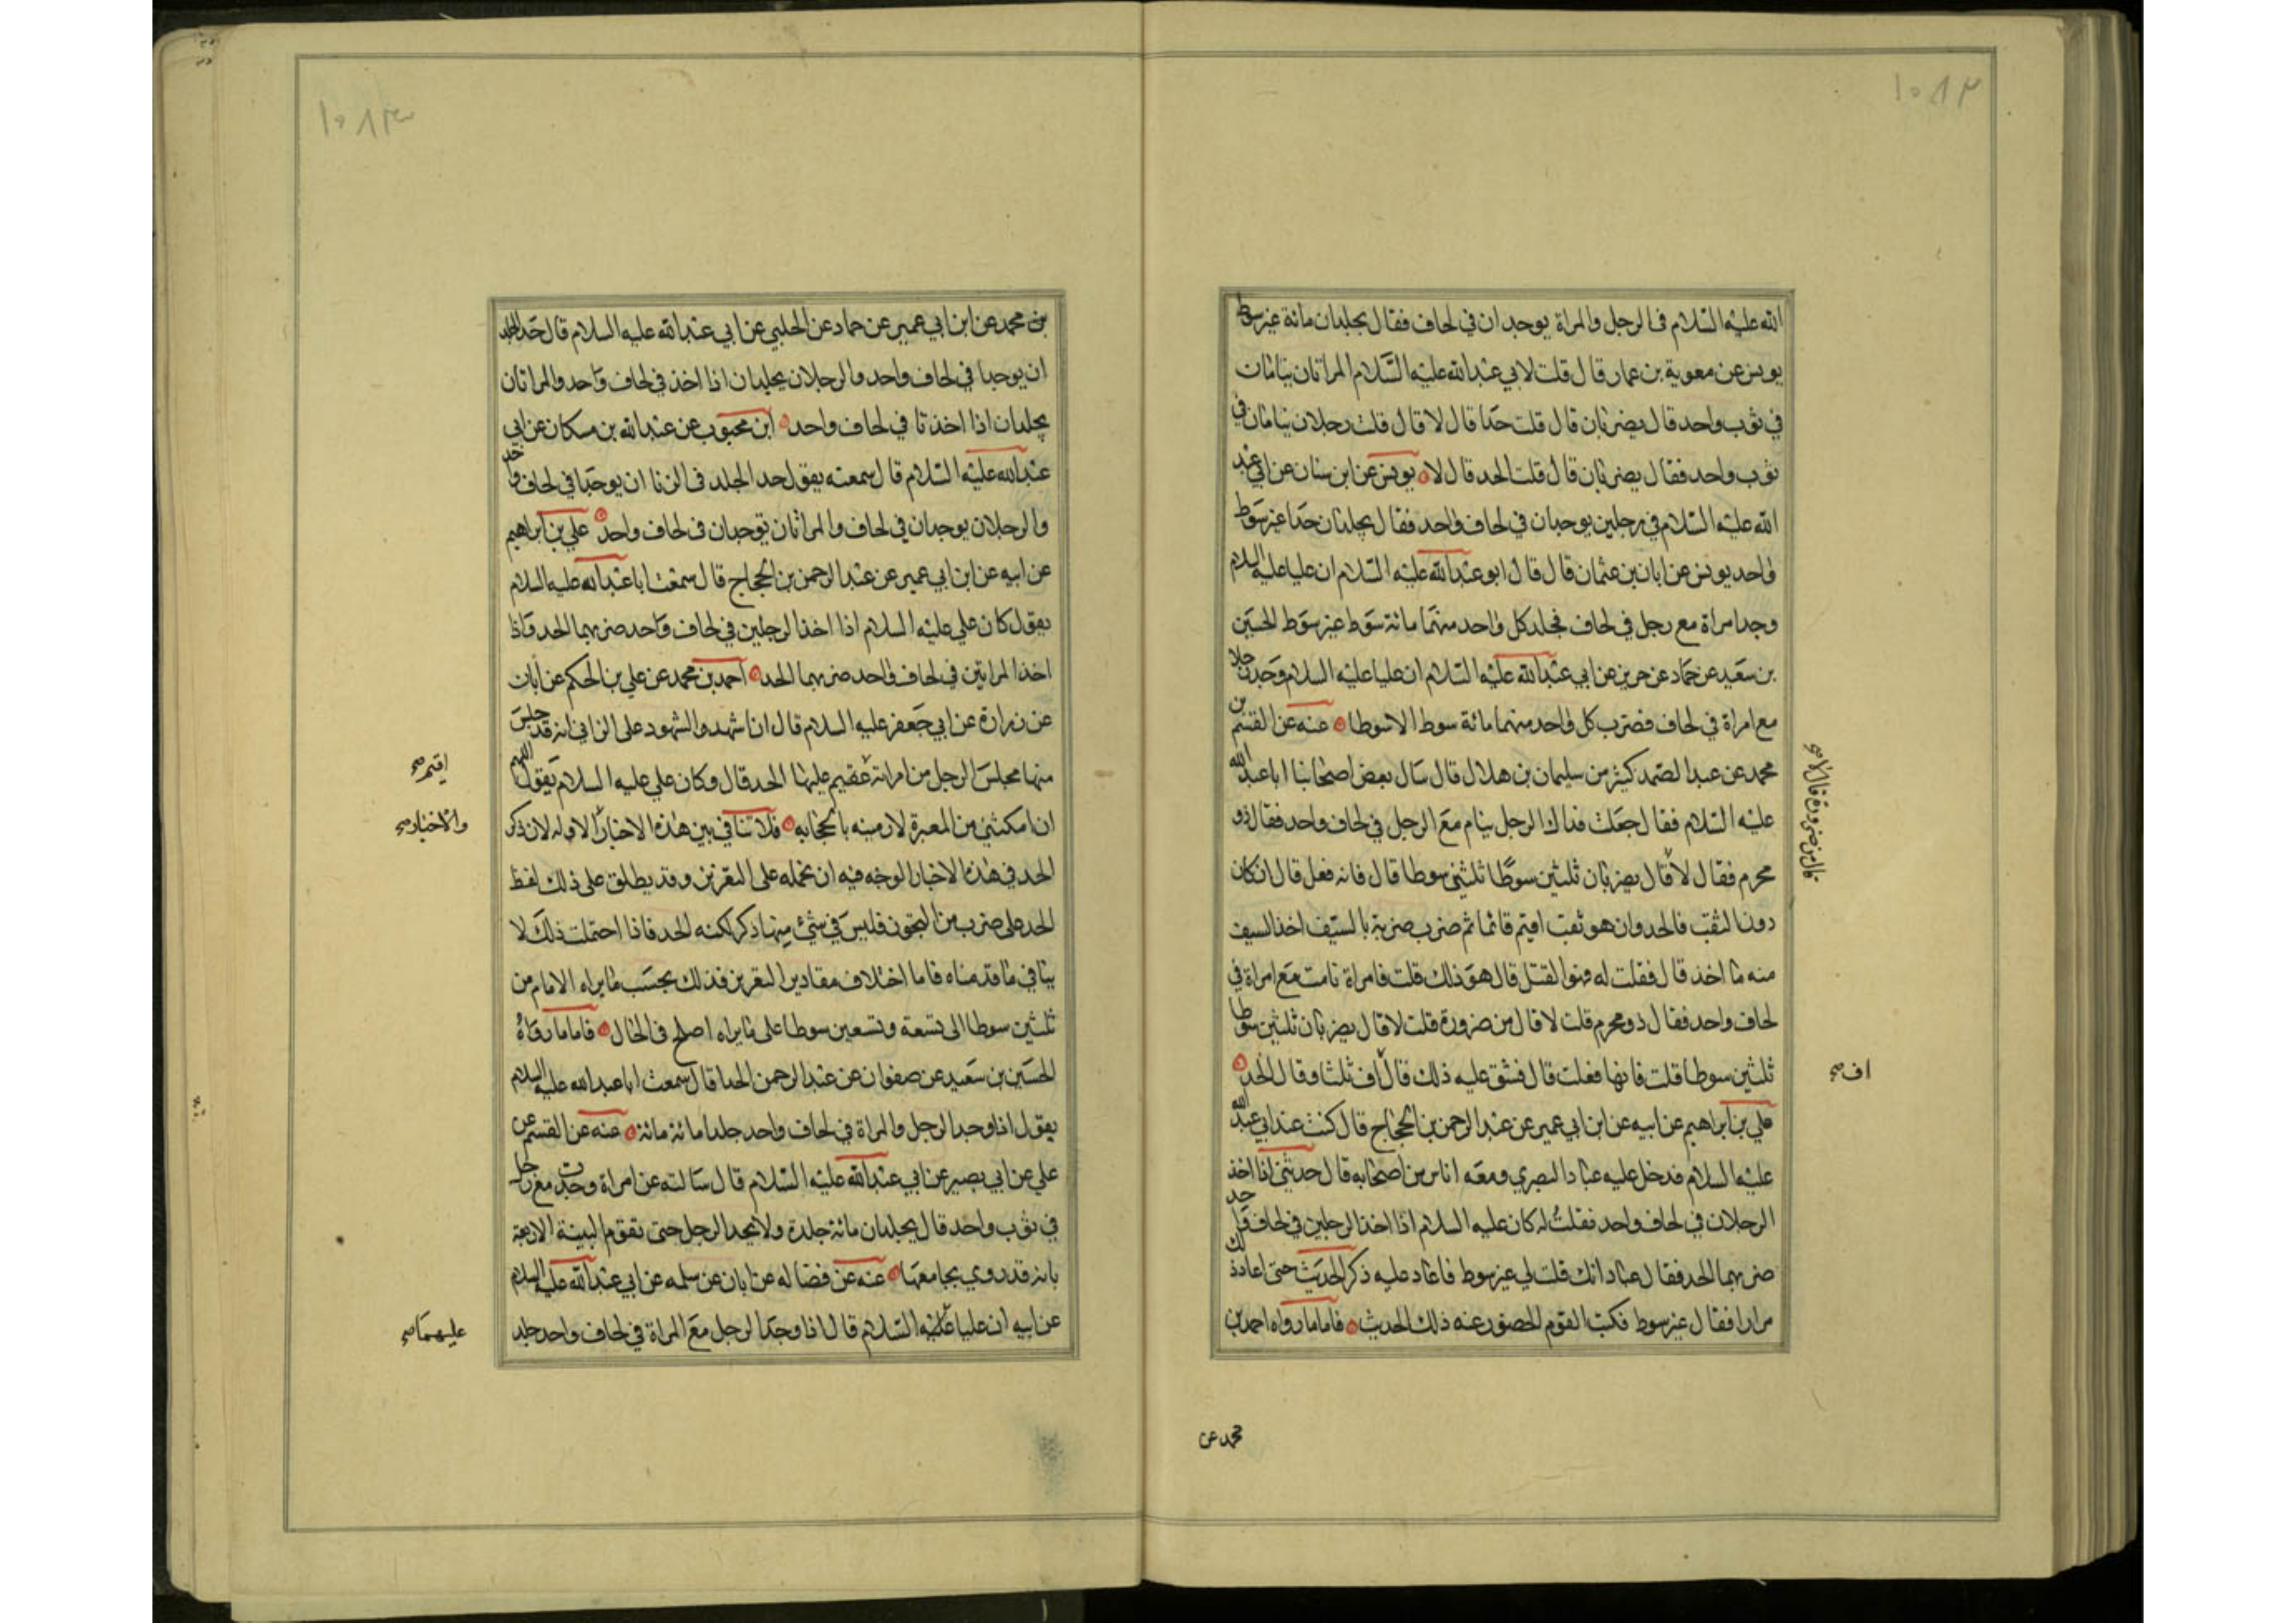 ١٠٨٢
الله عليه السلام في الرجل والمراة يوجدان في لحاف فقال يجلدان مائة غير سوط
يونس عن معوية بن عمار قال قلت لابي عبد الله عليه السلام المراتان ينامان
في ثوب واحد قال يضربان قال قلت حدا قال لا قال قلت رجلان ينامان في
ثوب واحد فقال يضربان قال قلت الحد قال لا يونس عن ابن سنان عن ابي عبد
الله عليه السلام في رجلين يوجدان في لحاف واحد فقال يجلدان حدا غير سوط
واحد يونس عن ابان بن عثمان قال قال ابو عبد الله عليه السلام ان عليا عليه السلام
وجد امراة مع رجل في لحاف فجلد كل واحد منهما مائة سوط غير سوط الحسين
بن سعيد عن حماد عن حريز عن ابي عبد الله عليه السلام ان عليا عليه السلام وجد رجلا
مع امراة في لحاف فضرب كل واحد منهما مائة سوط الا سوطا عنه عن القسم بن
محمد عن عبد الصمد كثير من سليمان بن هلال قال سال بعض اصحابنا ابا عبد الله
عليه السلام فقال جعلت فداك الرجل ينام مع الرجل في لحاف واحد فقال ذو
محرم فقال لا قال يضربان ثلثين سوطا ثلثين سوطا قال فانه فعل قال ان كان
قال من ضرورة قال لا صح
دون الثقب فالحد وان هو ثقب اقيم قائما ثم ضرب ضربة بالسيف اخذ السيف
منه ما اخذ قال فقلت له فهو القتل قال هو ذلك قلت فامراة نامت مع امراة في
لحاف واحد فقال ذو محرم قلت لا قال من ضرورة قلت لا قال يضربان ثلثين سوطا
ثلثين سوطا قلت فانها فعلت قال فشق عليه ذلك قال اف ثلثا وقال الحد
اف صح
علي بن ابراهيم عن ابيه عن ابن ابي عمير عن عبد الرحمن بن الحجاج قال كنت عند ابي عبد الله
عليه السلام فدخل عليه عباد البصري ومعه اناس من اصحابه قال حدثني اذا اخذ
الرجلان في لحاف واحد فقلت له كان عليه السلام اذا اخذ الرجلين في لحاف واحد
ضربهما الحد فقال عباد انك قلت لي غير سوط فاعاد عليه ذكر الحديث حتى اعاد ذلك
مرارا فقال غير سوط فكتب القوم الحضور عنه ذلك الحديث فاما ما رواه احمد بن
محمد عن
١٠٨٣
بن محمد عن ابن ابي عمير عن حماد عن الحلبي عن ابي عبد الله عليه السلام قال حد الجلد
ان يوجدا في لحاف واحد والرجلان يجلدان اذا اخذ في لحاف واحد والمراتان
يجلدان اذا اخذتا في لحاف واحد ابن محبوب عن عبد الله بن مسكان عن ابي
عبد الله عليه السلام قال سمعته يقول حد الجلد في الزنا ان يوجدا في لحاف واحد
والرجلان يوجدان في لحاف والمراتان توجدان في لحاف واحد علي بن ابراهيم
عن ابيه عن ابن ابي عمير عن عبد الرحمن بن الحجاج قال سمعت ابا عبد الله عليه السلام
يقول كان علي عليه السلام اذا اخذ الرجلين في لحاف واحد ضربهما الحد واذا
اخذ المراتين في لحاف واحد ضربهما الحد احمد بن محمد عن علي بن الحكم عن ابان
عن زرارة عن ابي جعفر عليه السلام قال اذا شهد والشهود على الزاني انه قد جلس
منها مجلس الرجل من امراته عقيم عليها الحد قال وكان علي عليه السلام يقول اللهم
اقيم صح
ان امكنتني من المغيرة لارمينه بالحجابه فلا تنافي بين هذه الاخبار الاوله لان ذكر
والاخبار صح
الحد في هذه الاخبار الوجه فيه ان نحمله على التعزير وقد يطلق على ذلك لفظ
الحد على ضرب من التجوز فليس في شيء منها ذكر لكنه الحد فاذا احتملت ذلك لا
ينافي ما قدمناه فاما اختلاف مقادير التعزير فذلك بحسب ما يراه الامام من
ثلثين سوطا الى تسعة وتسعين سوطا على ما يراه اصلح في الحال فاما ما رواه
الحسين بن سعيد عن صفوان عن عبد الرحمن الحذا قال سمعت ابا عبد الله عليه السلام
يقول اذا وجد الرجل والمراة في لحاف واحد جلدا مائة مائة عنه عن القسم عن
علي عن ابي بصير عن ابي عبد الله عليه السلام قال سالته عن امراة وجدت مع رجل
في ثوب واحد قال يجلدان مائة جلدة ولا يجد الرجل حتى تقوم البينة الاربعة
بانه قد روي يجامعها عنه عن فضاله عن ابان عن سلمه عن ابي عبد الله عليه السلام
عن ابيه ان عليا عليه السلام قال اذا وجد الرجل مع المراة في لحاف واحد جلد
عليهما صح